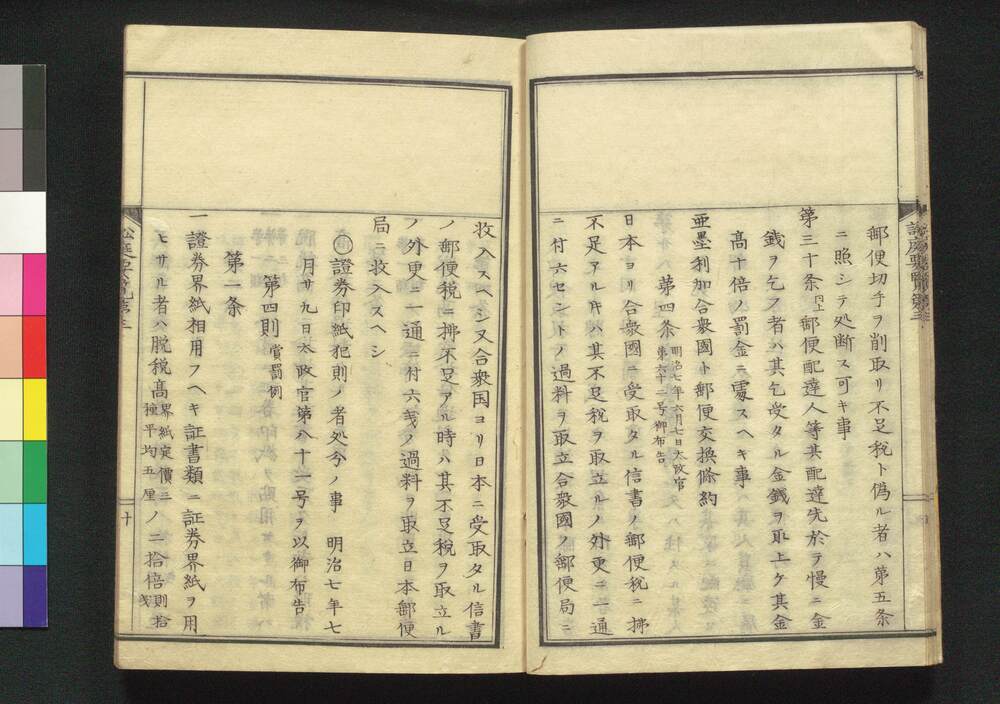 郵便切手ヲ削取リ不足税ト偽ル者ハ第五条
ニ照シテ処断ス可キ事
第三十条同上郵便配達人等其配達先於テ慢ニ金
銭ヲ乞フ者ハ其乞受タル金銭ヲ取上ケ其金
高十倍ノ罰金ニ處スヘキ事
亜墨利加合衆國ト郵便交換條約
第四条 明治七年六月七日太政官
第六十二号御布告
日本ヨリ合衆國ニ受取タル信書ノ郵便税ニ拂
不足アル𪜈ハ其不足税ヲ取立ルノ外更ニ一通
ニ付六セントノ過料ヲ取立合衆國ノ郵便局ニ
收入スヘシ又合衆国ヨリ日本ニ受取タル信書
ノ郵便税ニ拂不足アル時ハ其不足税ヲ取立ル
ノ外更ニ一通ニ付六戔ノ過料ヲ取立日本郵便
局ニ收入スヘシ
○證券印紙犯則ノ者処分ノ事 明治七年七
月廿九日太政官第八十一号ヲ以御布告
第四則 賞罰例
第一条
一 證券界紙相用フヘキ証書類ニ証券界紙ヲ用
ヒサル者ハ脱税高 界紙定價ニ
種平均五厘 ノ二拾倍 則拾
戔
十